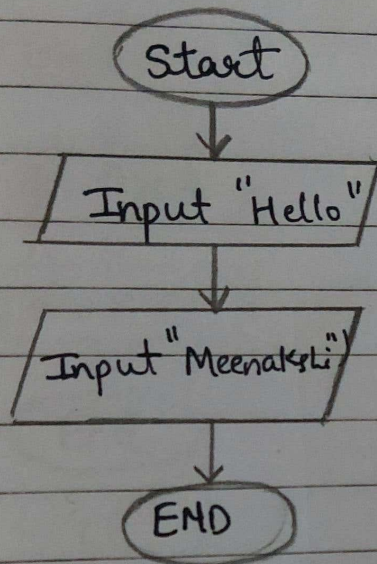 Start
Input "Hello"
Input "Meenakshi"
END